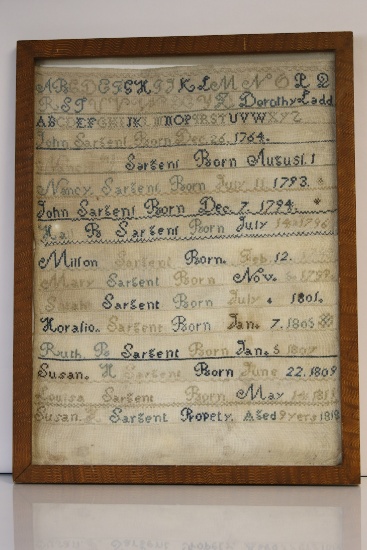 A B C D E F G H I J K L M N O P Q
R S T U V W X Y Z Dorothy Ladd
A B C D E F G H I J K L M N O P Q R S T U V W X Y Z
John Sargent Born Dec 26. 1764.
Sargent Born August. 1
Nancy. Sargent Born July 11 1793.
John Sargent Born Dec. 7. 1794.
P. Sargent Born July
Milton Sargent Born. Feb 12.
Mary Sargent Born Nov.
Sargent Born July 1801.
Horatio. Sargent Born Jan. 7. 1805
Ruth. P. Sargent Born Jan. 5 1807
Susan. H Sargent Born June 22. 1809
Louisa Sargent Born May
Susan. Sargent Propety. Aged 9 yers 1818